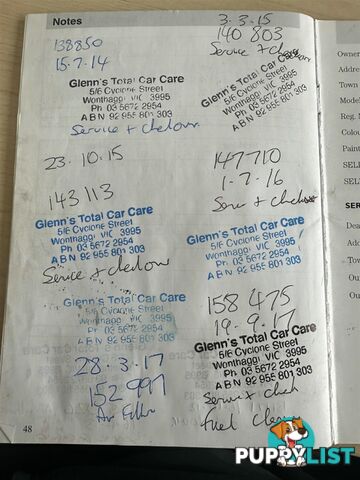 Notes
138850
15.7.14
Glenn's Total Car Care
5/6 Cyclone Street
Wonthaggi VIC 3995
Ph 03 5672 2954
ABN 92 955 801 303
Service + Checkover
3.3.15
140 803
Service + Checkover
Glenn's Total Car Care
5/6 Cyclone Street
Wonthaggi VIC 3995
Ph 03 5672 2954
ABN 92 955 801 303
23.10.15
143 113
Glenn's Total Car Care
5/6 Cyclone Street
Wonthaggi VIC 3995
Ph 03 5672 2954
ABN 92 955 801 303
Service + Checkover
147710
1-7.16
Serv + Checkover
Glenn's Total Car Care
5/6 Cyclone Street
Wonthaggi VIC 3995
Ph 03 5672 2954
ABN 92 955 801 303
Glenn's Total Car Care
5/6 Cyclone Street
Wonthaggi VIC 3995
Ph 03 5672 2954
ABN 92 955 801 303
28.3.17
152 997
Air Filter
158 475
19.9.17
Glenn's Total Car Care
5/6 Cyclone Street
Wonthaggi VIC 3995
Ph 03 5672 2954
ABN 92 955 801 303
Service + Check
Fuel Clean
48
Owner
Addr
Town
Mode
Reg.
Colou
Paint
SELL
SELL
SER
Dea
Ad
Tow
Of
Da
PUPPYLIST